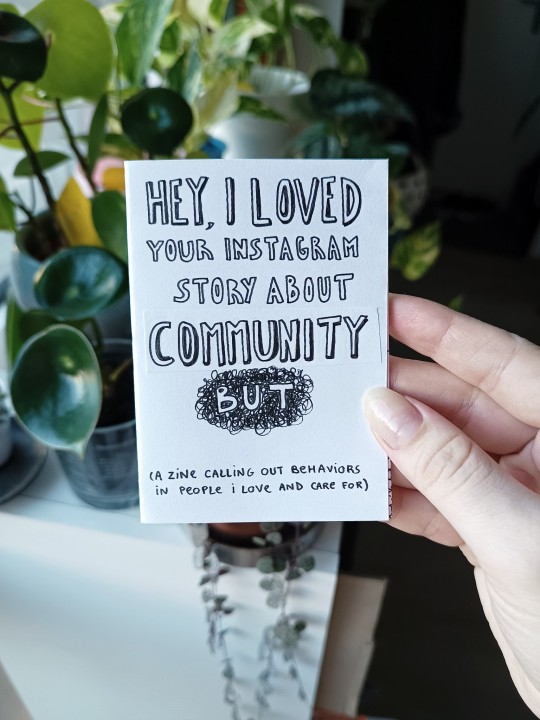 HEY, I LOVED
YOUR INSTAGRAM
STORY ABOUT
COMMUNITY
BUT
(A ZINE CALLING OUT BEHAVIORS
IN PEOPLE i LOVE AND CARE FOR)